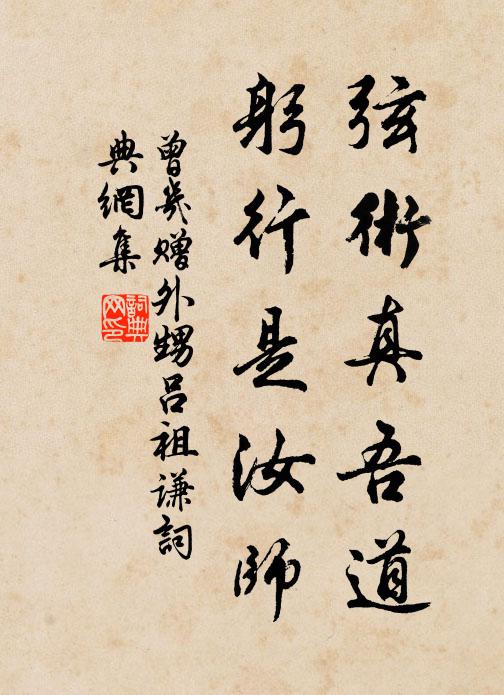 弦術真吾道
躬行是汝師
曾幾贈外甥呂祖謙詞
典網集
詞典网印